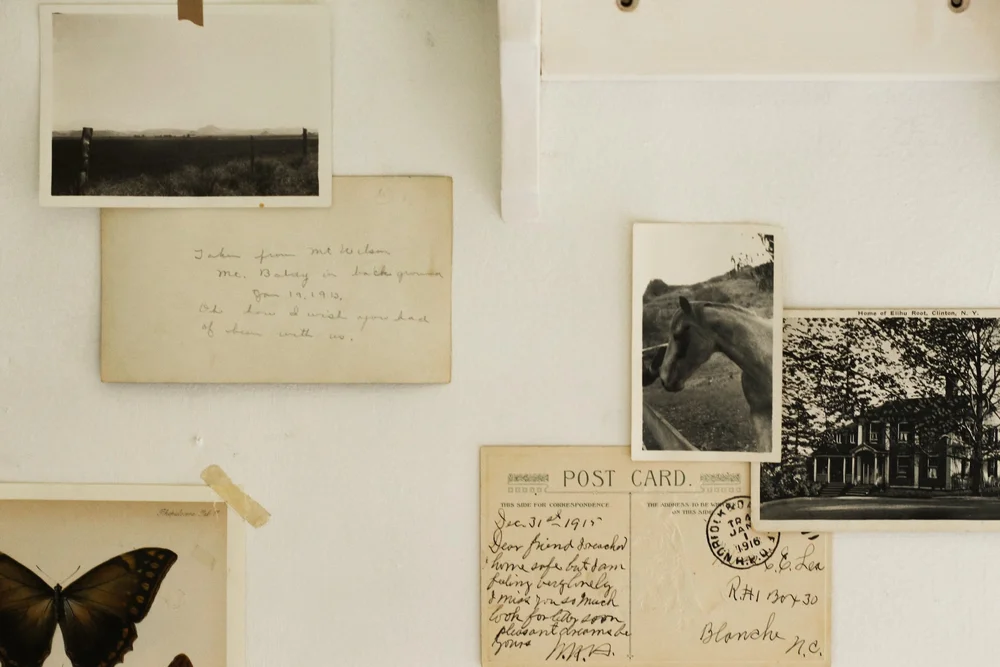 Taken from Mt Wilson
Mt. Baldy in back ground
Jan 19, 191
Oh how I wish you had
of been with us.
Home of Elihu Root, Clinton, N. Y.
POST CARD.
THIS SIDE FOR CORRESPONDENCE
THE ADDRESS TO BE
ON THIS SIDE
Dec. 31st 1915
Dear friend I reached
home safe but I am
feeling very lonely
I miss you so much
look for letter soon
pleasant dreams be
yours
NORFOLK & 
TR
JAN
1
1916
C. E. Lea
R.#1 Box 30
Blanche N.C.